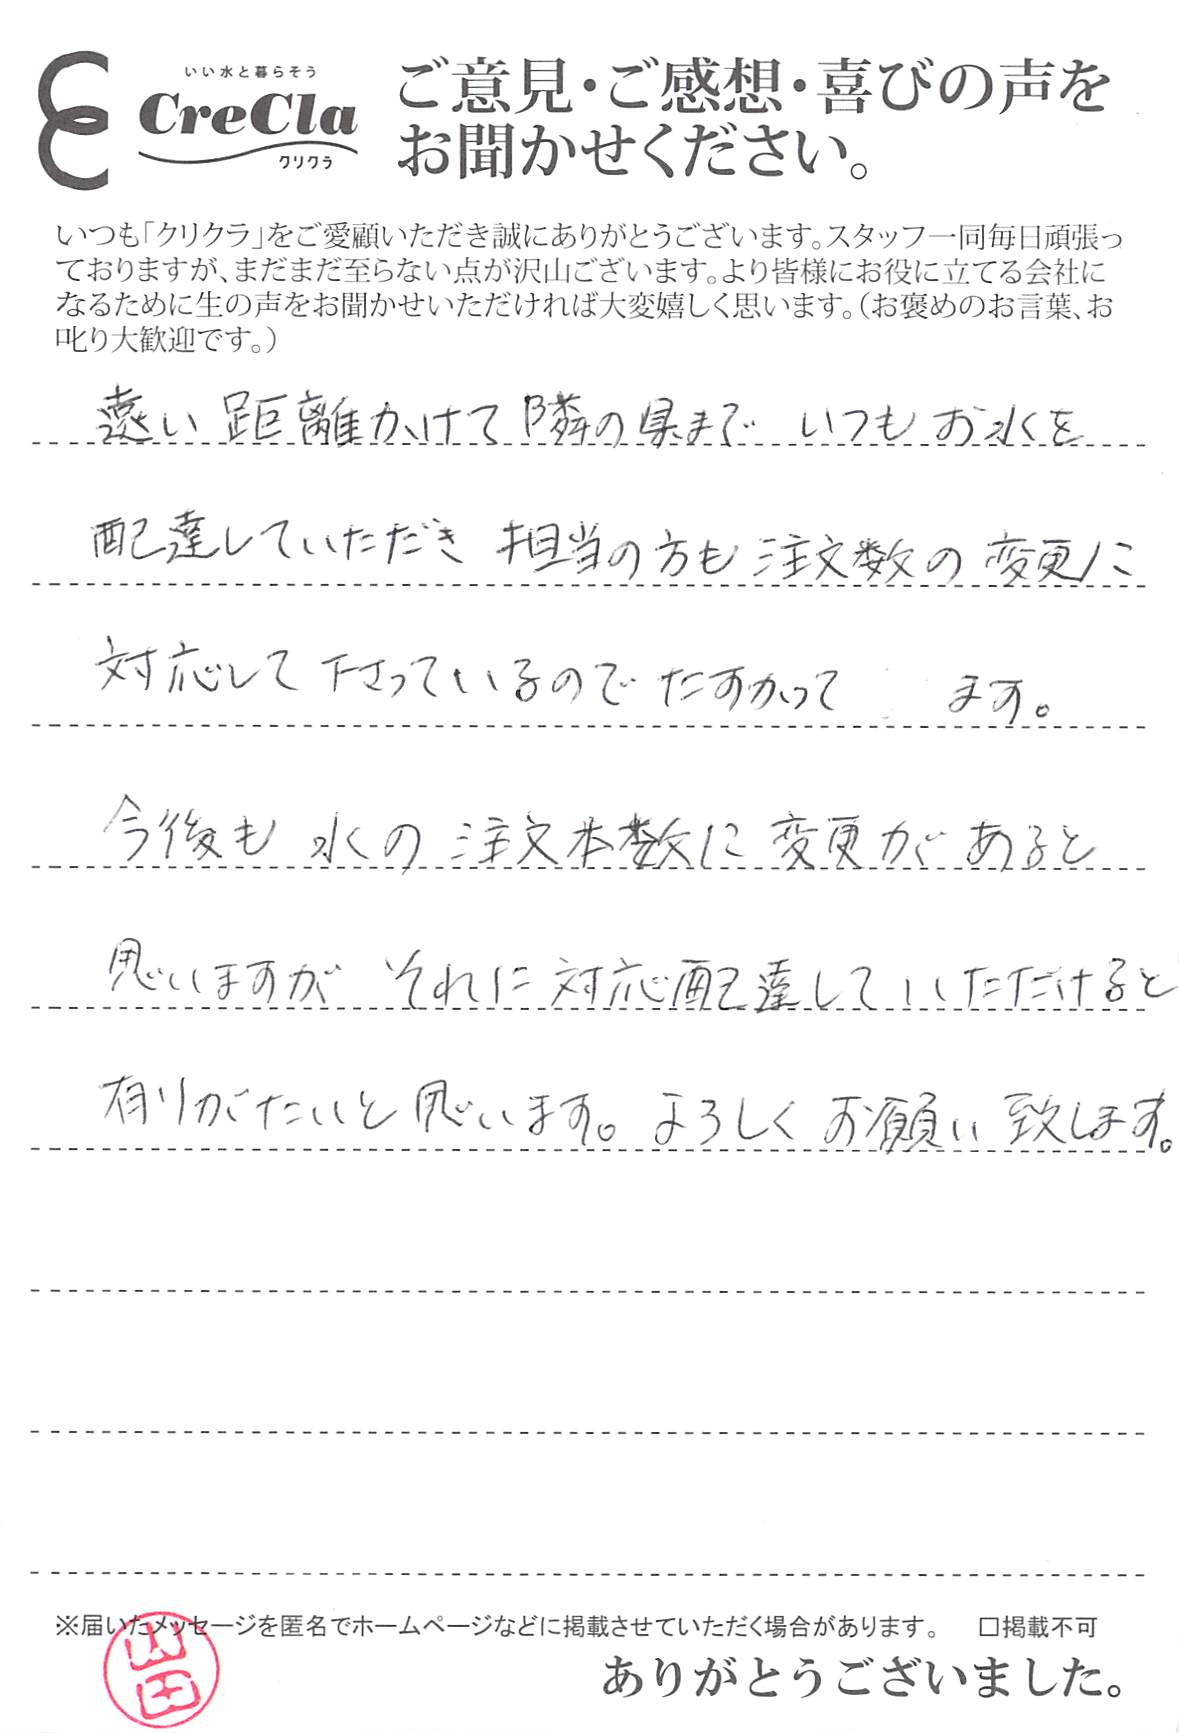 いい水と暮らそう
CreCla
クリクラ
ご意見・ご感想・喜びの声を
お聞かせください。
いつも「クリクラ」をご愛顧いただき誠にありがとうございます。スタッフ一同毎日頑張っ
ておりますが、まだまだ至らない点が沢山ございます。より皆様にお役に立てる会社に
なるために生の声をお聞かせいただければ大変嬉しく思います。(お褒めのお言葉、お
叱り大歓迎です。)
遠い距離かけて隣の県まで いつもお水を
配達していただき 担当の方も注文数の変更に
対応して下さっているので たすかって ます。
今後も水の注文本数に変更があると
思いますが それに対応配達していただけると
有りがたいと思います。よろしくお願い致します。
※届いたメッセージを匿名でホームページなどに掲載させていただく場合があります。 □掲載不可
山田
ありがとうございました。